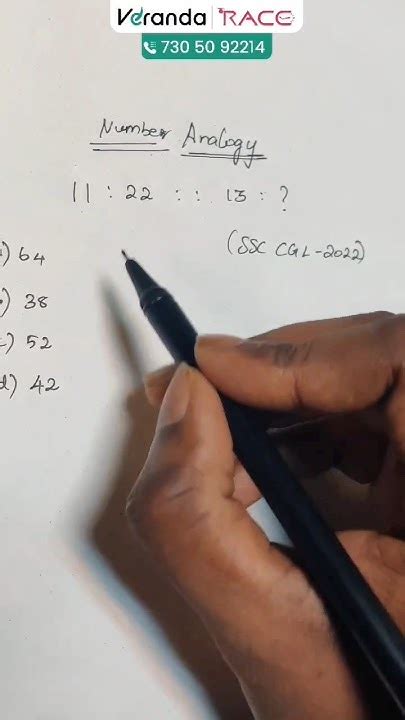 Veranda RACE
730 50 92214
Number Analogy
11 : 22 : : 13 : ?
(SSC CGL-2022)
) 64
) 38
c) 52
d) 42